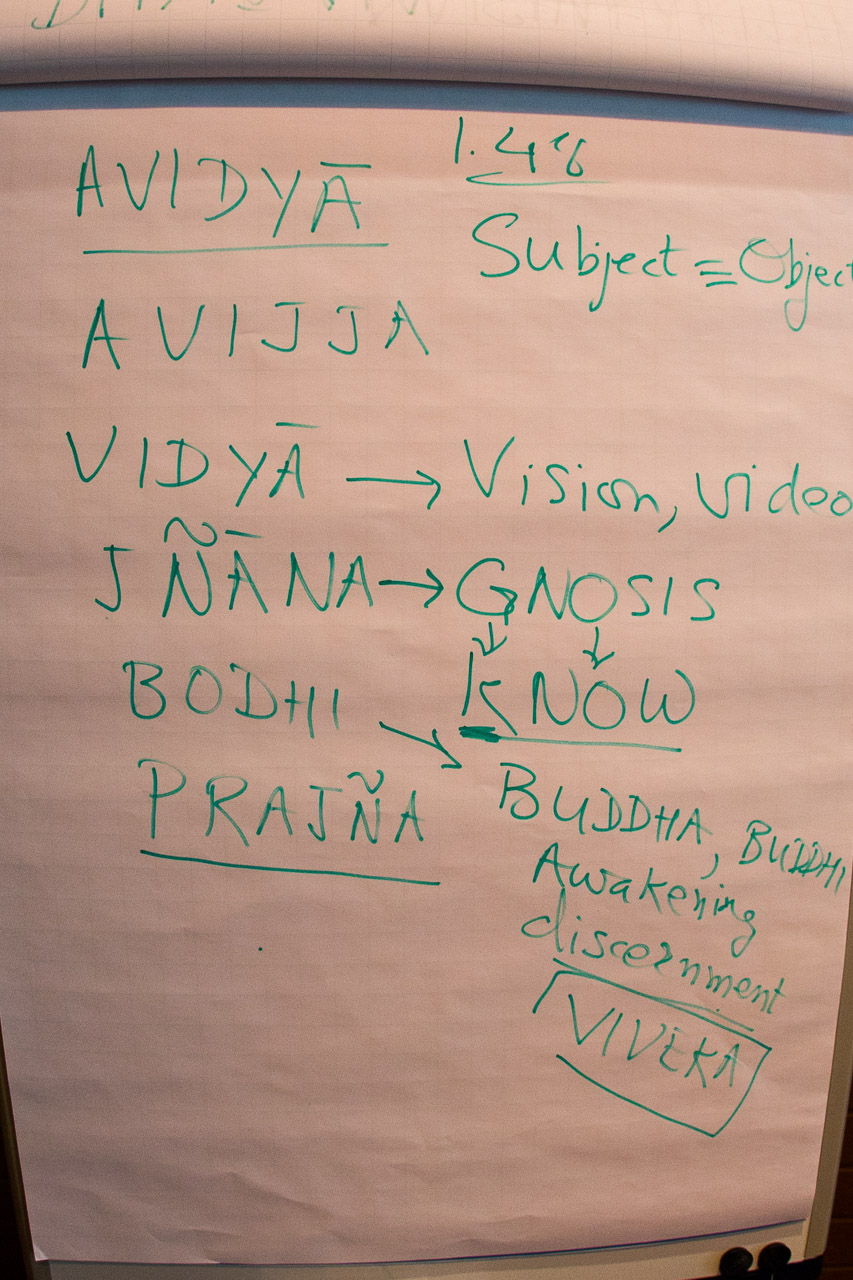 AVIDYĀ
1.48
Subject = Object
AVIJJA
VIDYĀ → Vision, video
JÑĀNA → GNOSIS
BODHI
KNOW
PRAJÑA
BUDDHA, BUDDHI
Awakening
discernment
VIVEKA